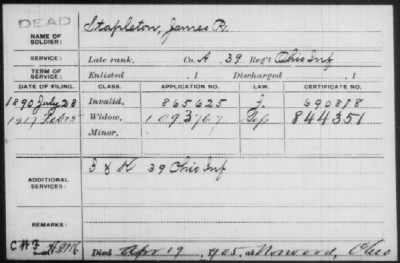 DEAD
NAME OF SOLDIER: Stapleton, James R.
SERVICE: Late rank, Co. A, 39 Reg't Ohio Inf
TERM OF SERVICE: Enlisted , 1 Discharged , 1
DATE OF FILING. CLASS. APPLICATION NO. LAW. CERTIFICATE NO.
1890 July 28 Invalid, 865625 J. 690878
Widow, 1093767 844351
Minor,
ADDITIONAL SERVICES: I & K 39 Ohio Inf
REMARKS:
Died Apr 19, 1905, at Norwood, Ohio